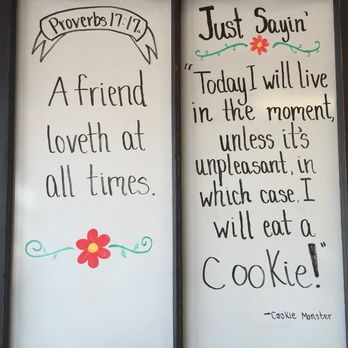 Proverbs 17:17.
A friend
loveth at
all times.
Just Sayin'
"Today I will live
in the moment,
unless it's
unpleasant, in
which case, I
will eat a
Cookie!"
-Cookie Monster